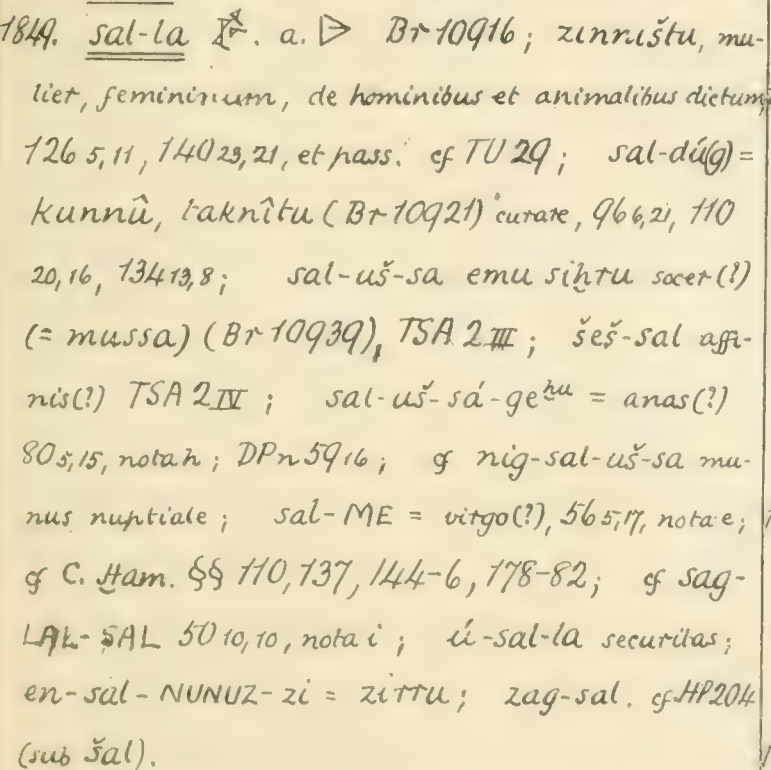 1849. sal-la a. Br 10916; zinništu, mu-
lier, femininum, de hominibus et animalibus dictum,
126 5,11, 140 23,21, et pass. cf TU 29; sal-dú(g) =
kunnû, taknîtu (Br 10921) curare, 96 6,21, 110
20,16, 134 13,8; sal-uš-sa emu siḫru socer(?)
(= mussa) (Br 10939), TSA 2 III; šeš-sal affi-
nis(?) TSA 2 IV; sal-uš-sá-ge ḫu = anas(?)
80 5,15, nota h; DPn 59 16; cf nig-sal-uš-sa mu-
nus nuptiale; sal-ME = virgo(?), 56 5,17, nota e;
cf C. Ḫam. §§ 110, 137, 144-6, 178-82; cf sag-
LAL-SAL 50 10,10, nota i; ú-sal-la securitas;
en-sal-NUNUZ-zi = zirru; zag-sal. cf HP 204
(sub šal).